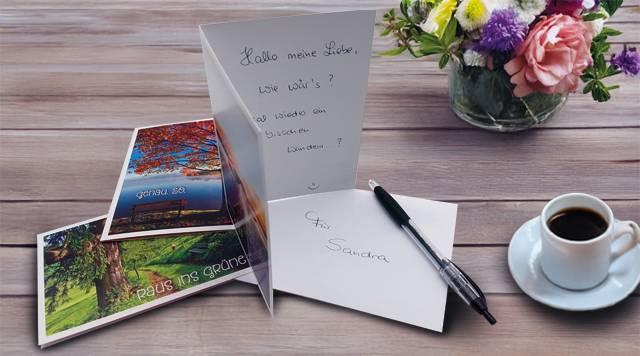 Hallo meine Liebe,
wie wär's?
al wieder ein
bisschen
wandern..?
genau so.
Raus ins Grüne
Für
Sandra